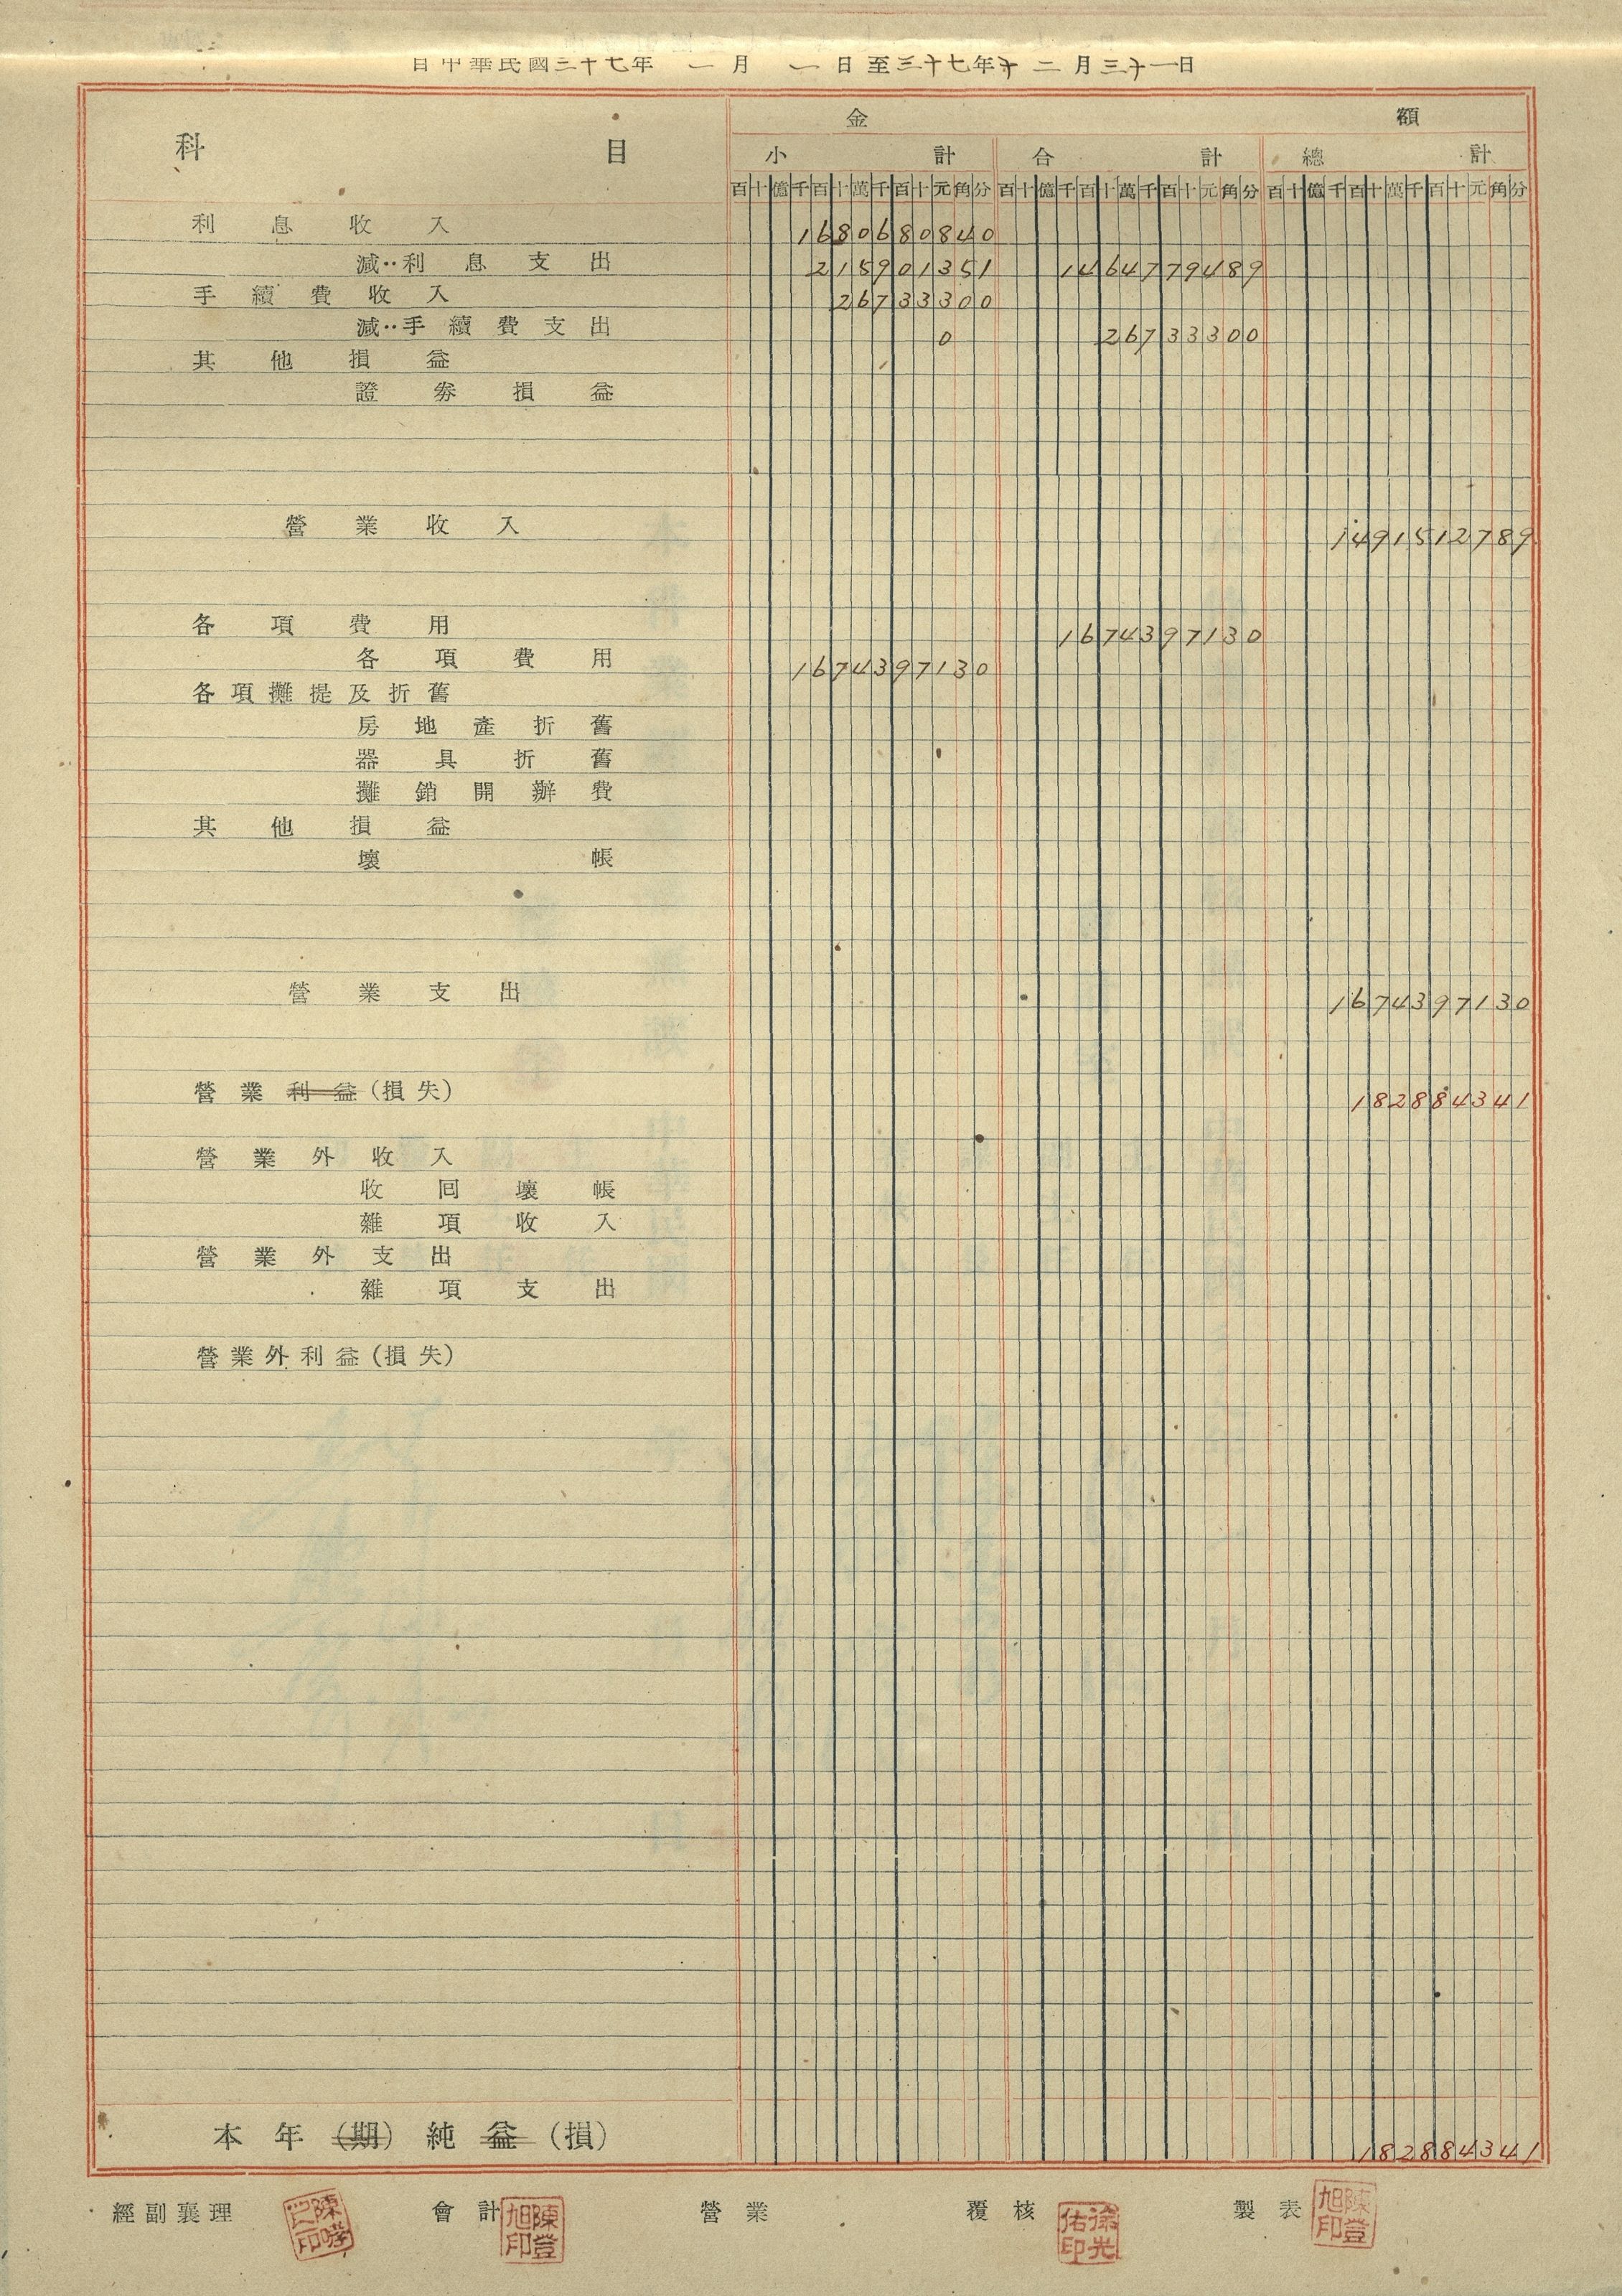 自中華民國三十七年 一 月 一 日至三十七年十二月三十一日
科 目 金 額
小 計 合 計 總 計
百十億千百十萬千百十元角分 百十億千百十萬千百十元角分 百十億千百十萬千百十元角分
利息收入 1680680840
減‥利息支出 215901351 1464779489
手續費收入 26733300
減‥手續費支出 0 26733300
其他損益
證券損益
營業收入 1491512789
各項費用 1674397130
各項費用 1674397130
各項攤提及折舊
房地產折舊
器具折舊
攤銷開辦費
其他損益
壞帳
營業支出 1674397130
營業利益(損失) 182884341
營業外收入
收回壞帳
雜項收入
營業外支出
雜項支出
營業外利益(損失)
本年(期)純益(損) 182884341
經副襄理 會計 陳登旭印 營業 覆核 徐光佑印 製表 陳登旭印